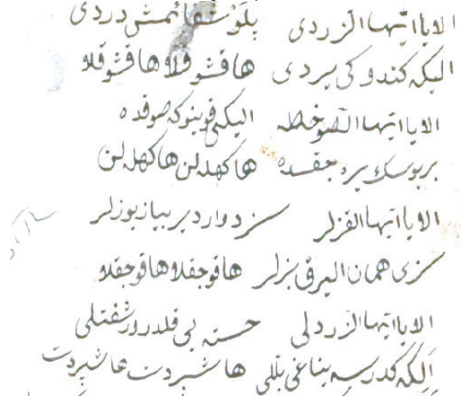 الا یا ایها الزردی بلوشفائمش دردی
الیکه کندوکی سردی هاقشوقلا هاقشوقلا
الا یا ایها الصوخطه الیکی قوینوکه صوقده
بر بوسك یره جقده ها کهلدلن ها کهلدلن
الا یا ایها القزلر سزدوارد بر بیاز یوزلر
سزی همان الیرق بزلر هاقوجقلا هاقوجقلا
الا یا ایها الزردلی خسته یی قلدرر شفتلی
الکه کدرسه یناغی بللی ها شپردت ها شپردت